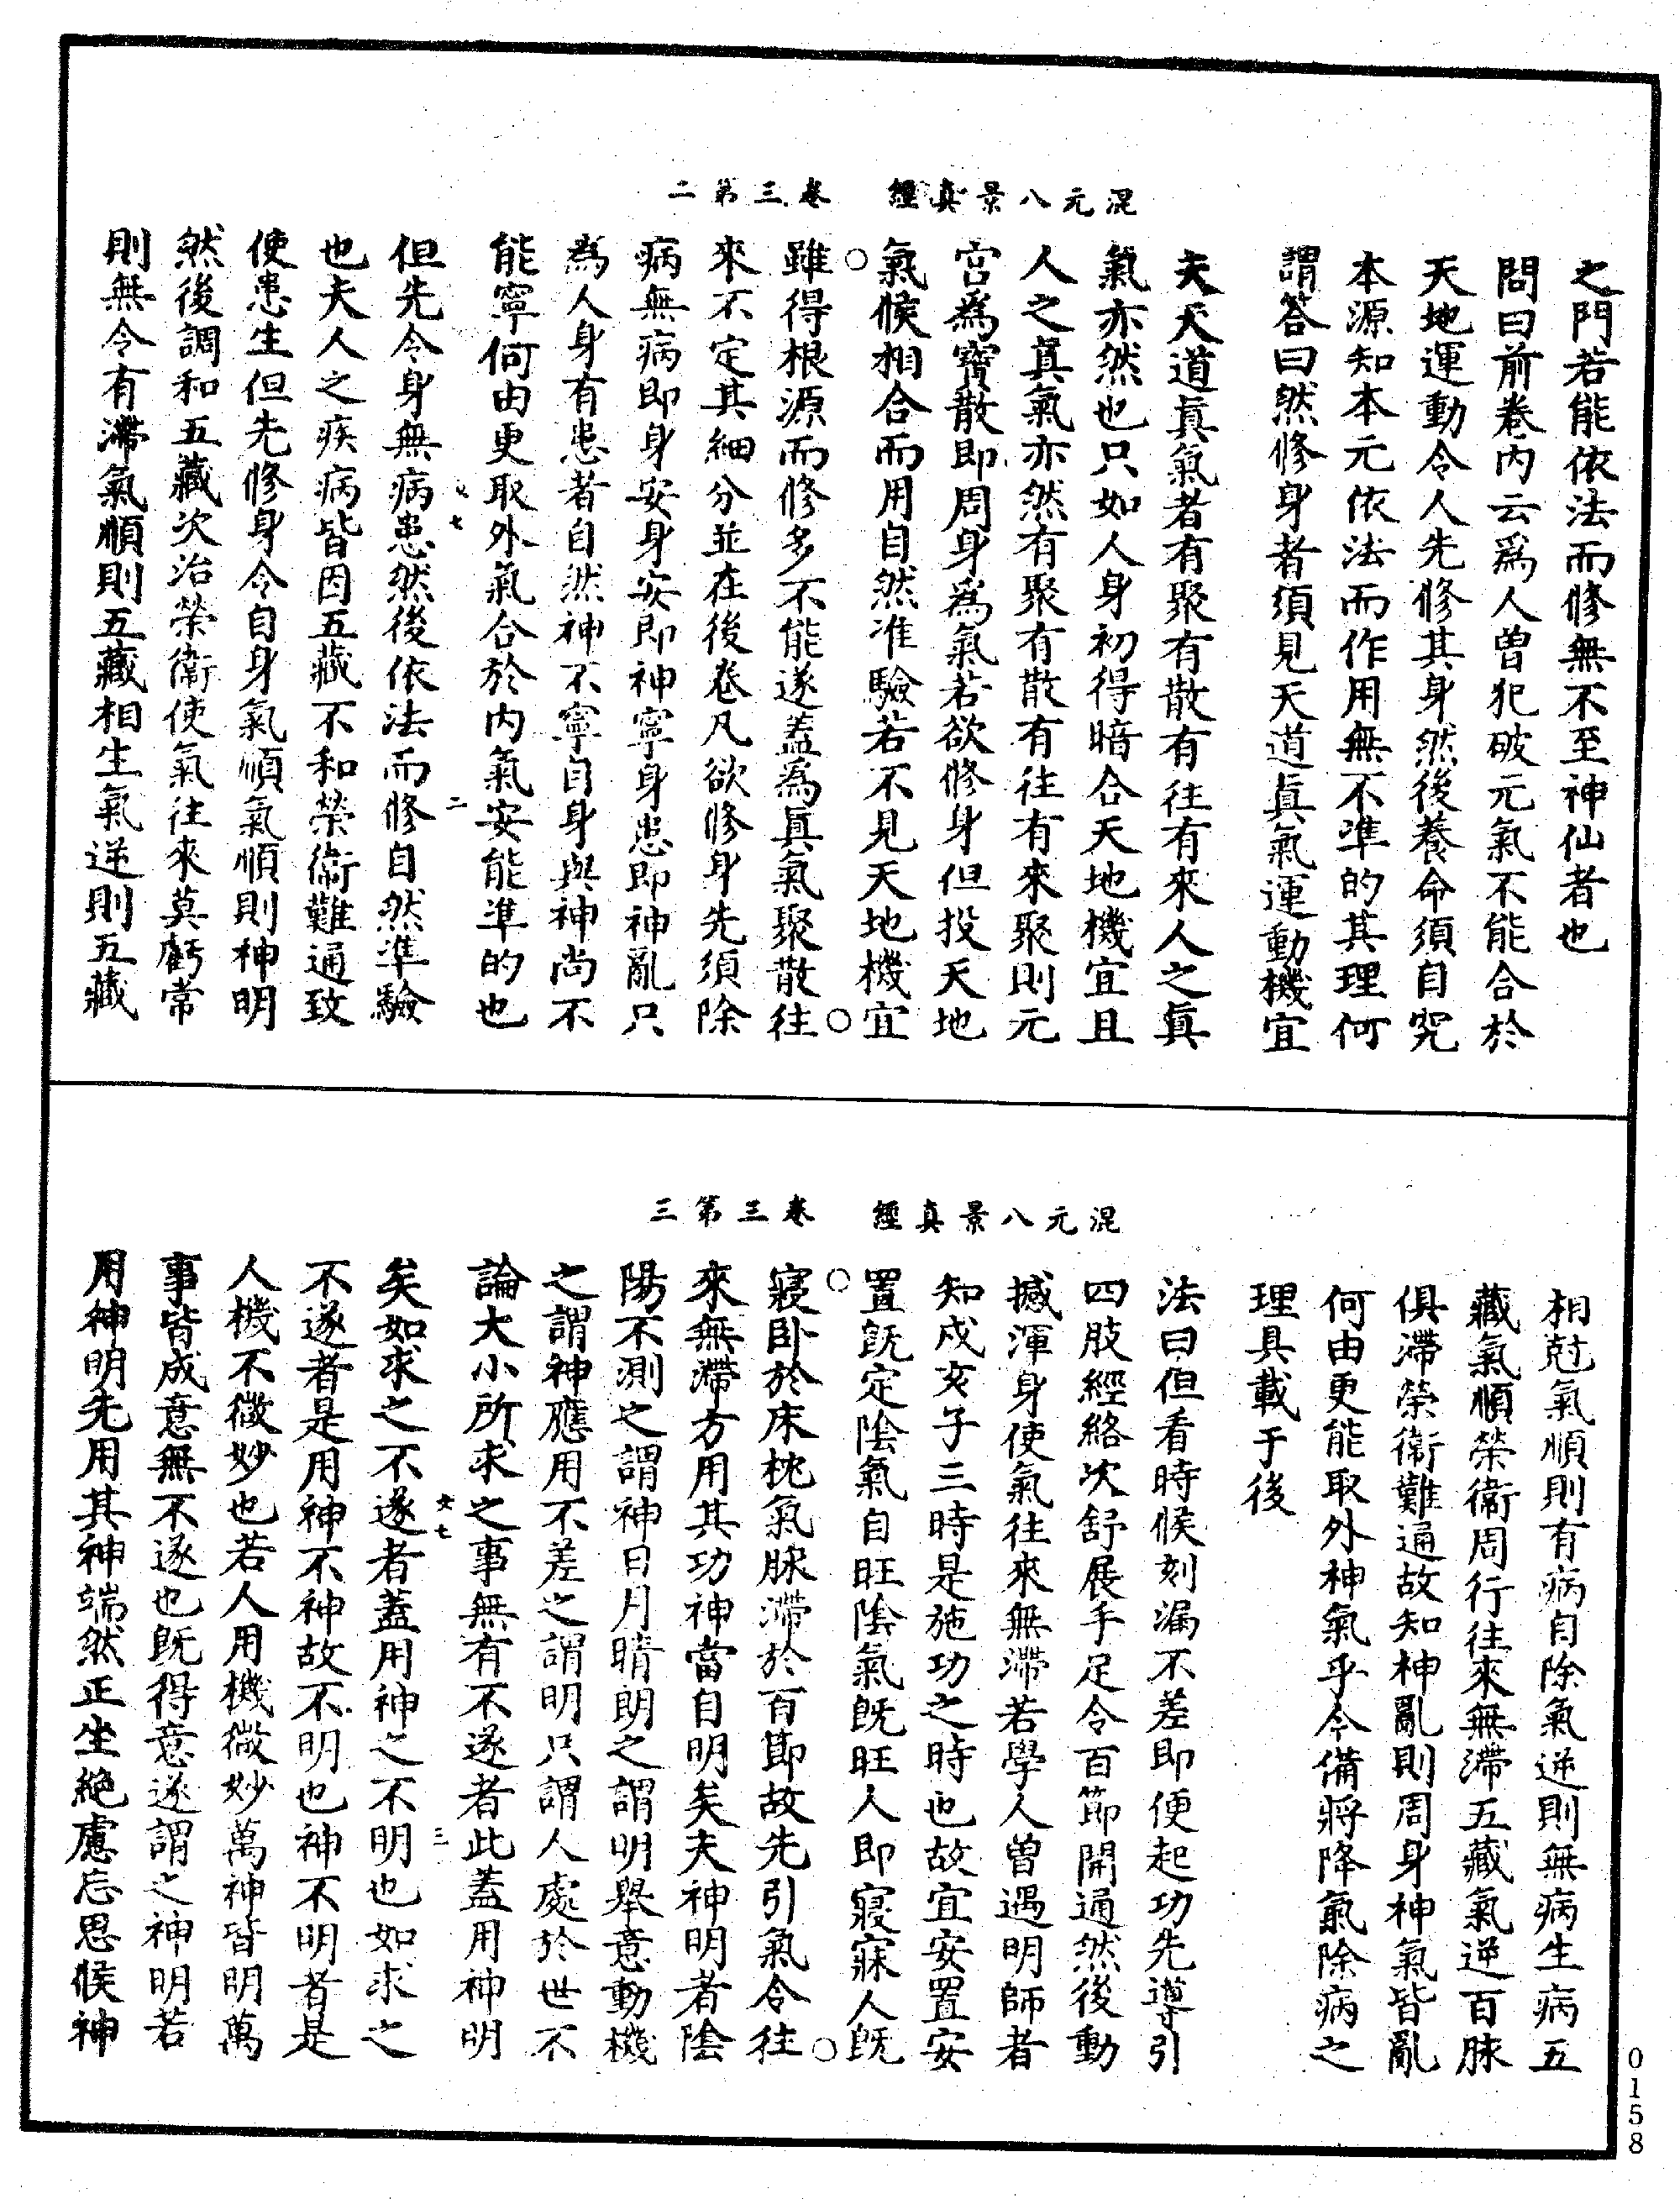 混元八景真經　卷三第二
之門若能依法而修無不至神仙者也
問曰前卷內云爲人曾犯破元氣不能合於
天地運動令人先修其身然後養命須自究
本源知本元依法而作用無不準的其理何
謂答曰然修身者須見天道眞氣運動機宜
夫天道眞氣者有聚有散有往有來人之眞
氣亦然也只如人身初得暗合天地機宜且
人之眞氣亦然有聚有散有往有來聚則元
宮爲寶散即周身爲氣若欲修身但投天地
氣候相合而用自然准驗若不見天地機宜
雖得根源而修多不能遂蓋爲眞氣聚散往
來不定其細分並在後卷凡欲修身先須除
病無病即身安身安即神寧身患即神亂只
爲人身有患者自然神不寧自身與神尚不
能寧何由更取外氣合於內氣安能準的也
但先令身無病患然後依法而修自然準驗
也夫人之疾病皆因五藏不和榮衛難通致
使患生但先修身令自身氣順氣順則神明
然後調和五藏次治榮衛使氣往來莫虧常
則無令有滯氣順則五藏相生氣逆則五藏
混元八景真經　卷三第三
相尅氣順則有病自除氣逆則無病生病五
藏氣順榮衛周行往來無滯五藏氣逆百脉
俱滯榮衛難通故知神亂則周身神氣皆亂
何由更能取外神氣乎今備將降氣除病之
理具載于後
法曰但看時候刻漏不差即便起功先導引
四肢經絡次舒展手足令百節開通然後動
撼渾身使氣往來無滯若學人曾遇明師者
知戌亥子三時是施功之時也故宜安置安
置既定陰氣自旺陰氣既旺人即寢寐人既
寢卧於床枕氣脉滯於百節故先引氣令往
來無滯方用其功神當自明矣夫神明者陰
陽不測之謂神日月晴朗之謂明舉意動機
之謂神應用不差之謂明只謂人處於世不
論大小所求之事無有不遂者此蓋用神明
矣如求之不遂者蓋用神之不明也如求之
不遂者是用神不神故不明也神不明者是
人機不微妙也若人用機微妙萬神皆明萬
事皆成意無不遂也既得意遂謂之神明若
用神明先用其神端然正坐絶慮忘思候神
0158